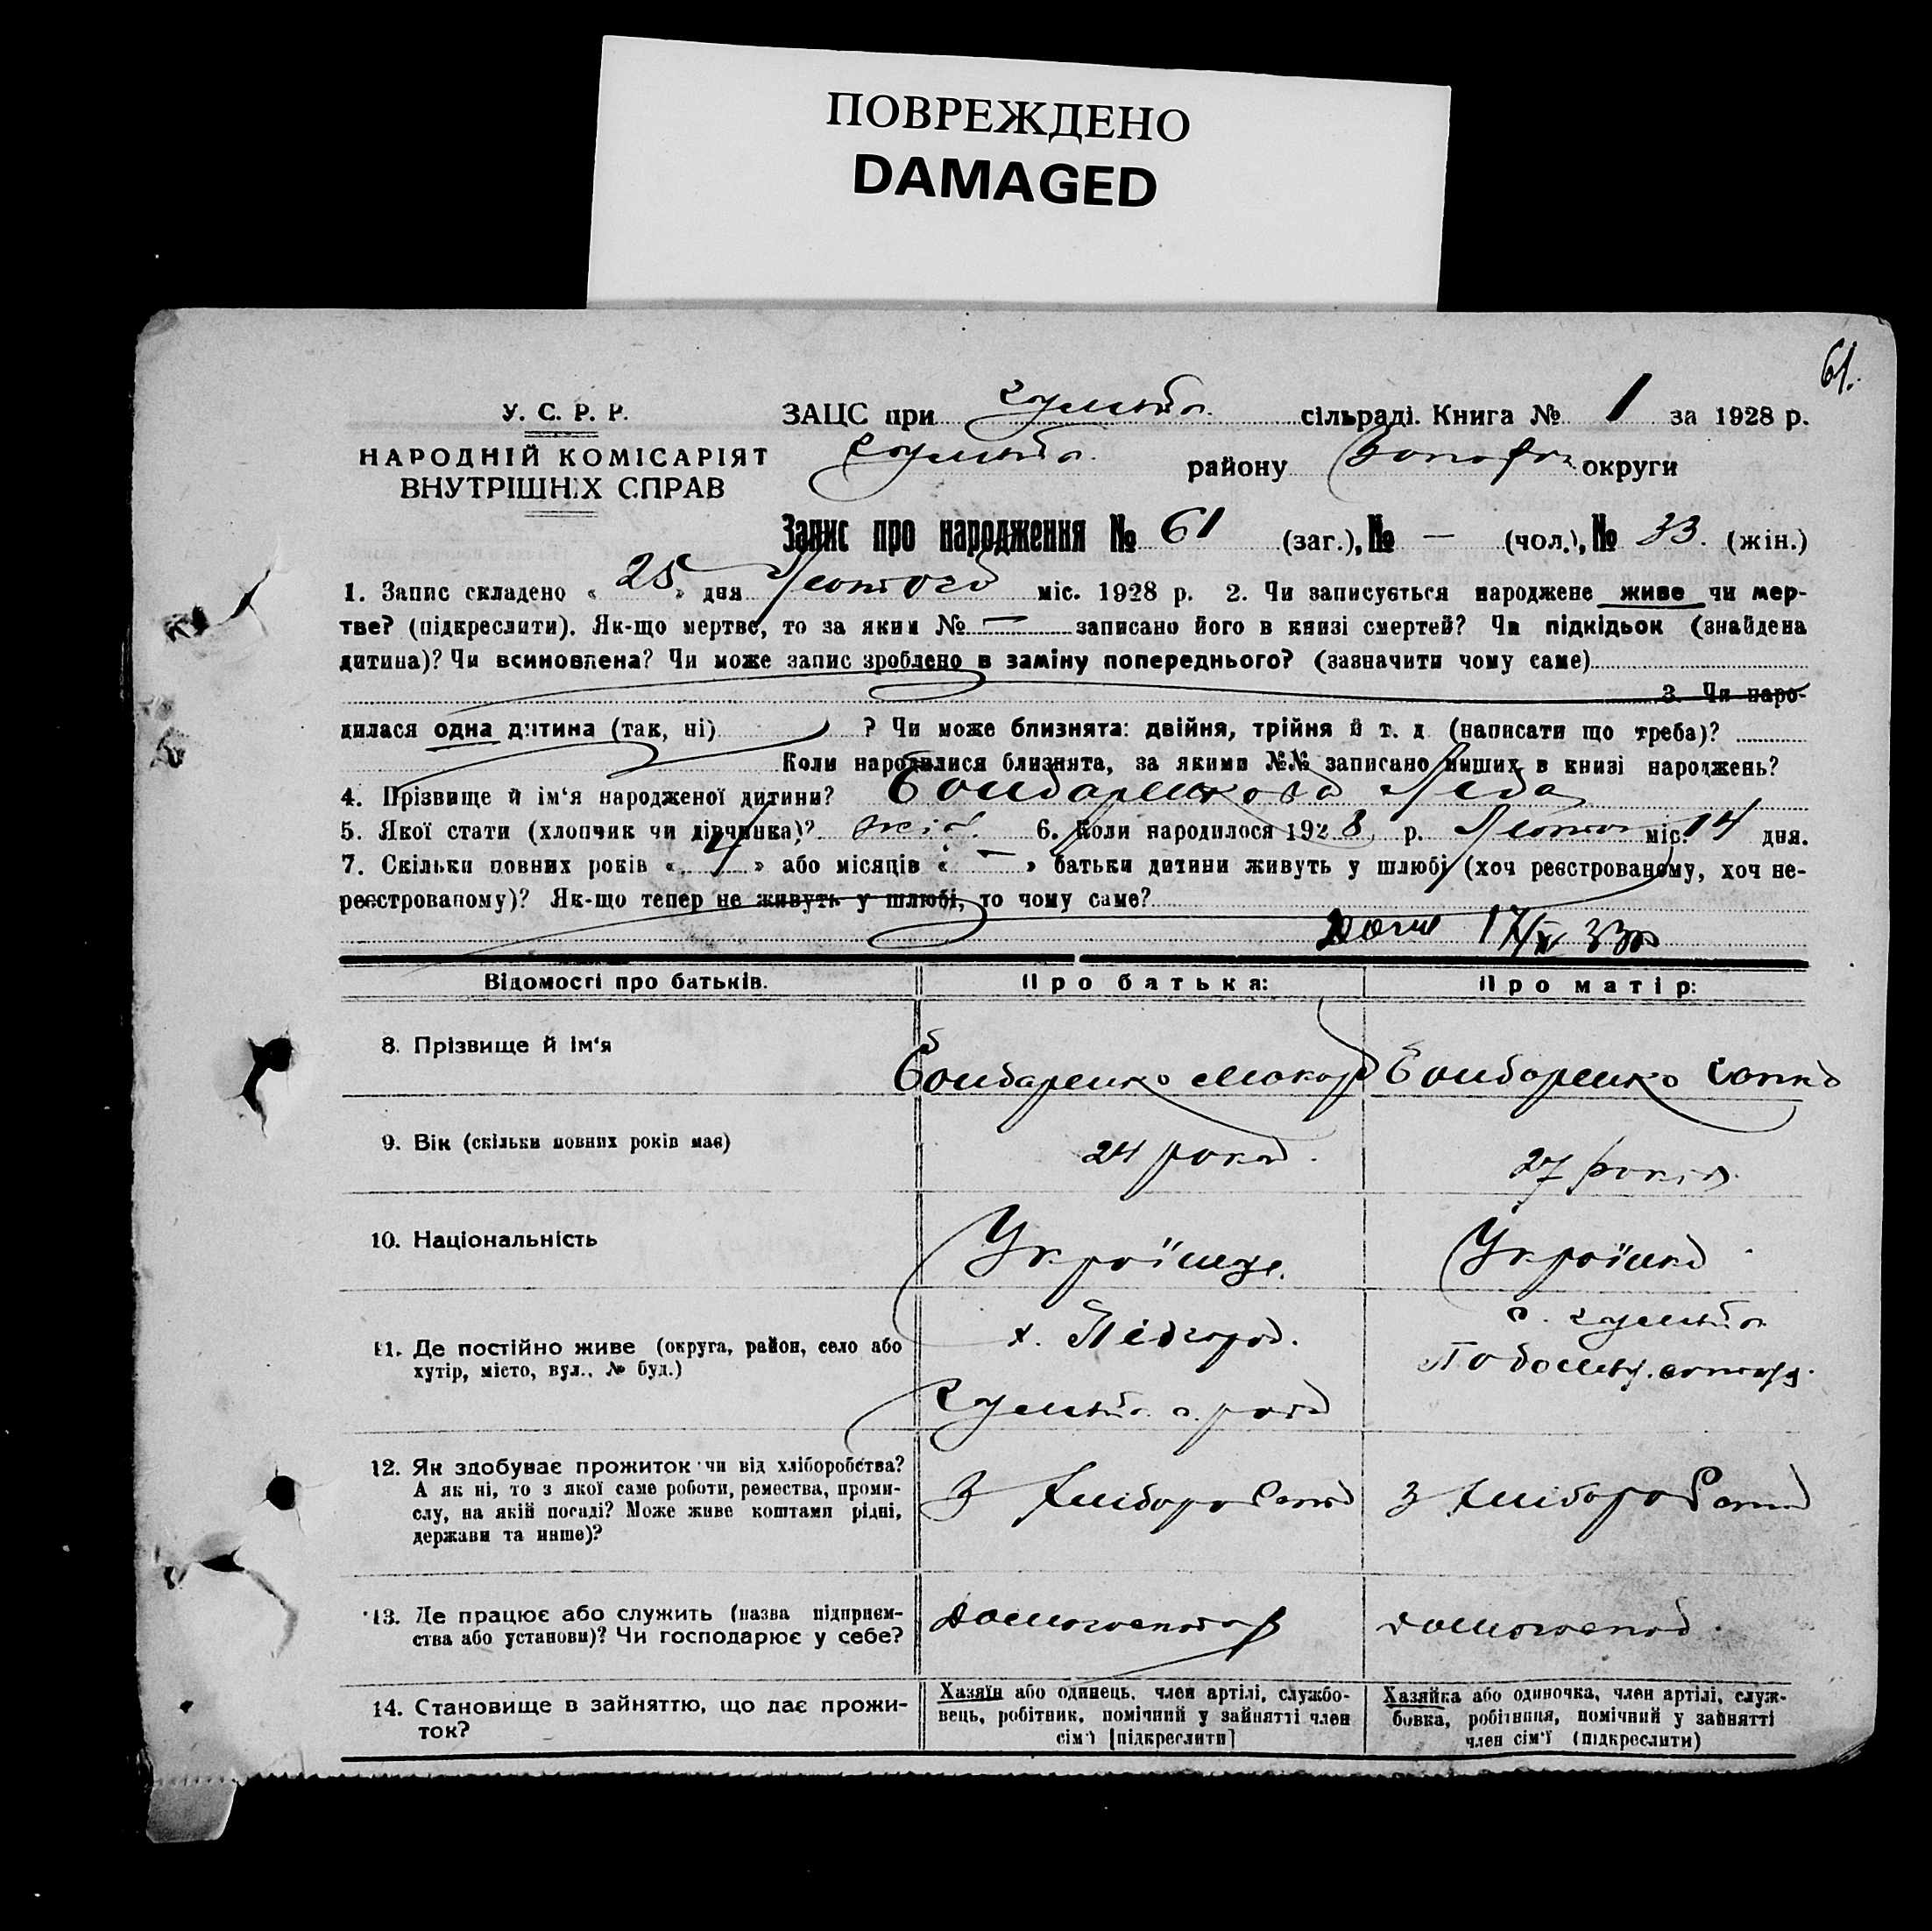 ПОВРЕЖДЕНО
DAMAGED
61.
У. С. Р. Р.
НАРОДНІЙ КОМІСАРІЯТ
ВНУТРІШНІХ СПРАВ
ЗАЦС при сільраді. Книга № 1 за 1928 р.
району округи
Запис про народження № 61 (заг.), № — (чол.), № 33. (жін.)
1. Запис складено « 25 » дня Лютого міс. 1928 р. 2. Чи записується народжене живе чи мер-
тве? (підкреслити). Як-що мертве, то за яким № — записано його в книзі смертей? Чи підкідьок (знайдена
дитина)? Чи всиновлена? Чи може запис зроблено в заміну попереднього? (зазначити чому саме)
3. Чи наро-
дилася одна дитина (так, ні) ? Чи може близнята: двійня, трійня й т. д. (написати що треба)?
Коли народилися близнята, за якими №№ записано инших в книзі народжень?
4. Прізвище й ім'я народженої дитини? Бондаренкова
5. Якої стати (хлопчик чи дівчинка)? жін. 6. Коли народилося 1928 р. Лютого міс. 14 дня.
7. Скільки повних років « » або місяців « — » батьки дитини живуть у шлюбі (хоч реєстрованому, хоч не-
реєстрованому)? Як-що тепер не живуть у шлюбі, то чому саме?
Відомості про батьків. Про батька: Про матір:
8. Прізвище й ім'я Бондаренко Макар Бондаренко
9. Вік (скільки повних років має) 24 роков. 27 років.
10. Національність Українец. Українка
11. Де постійно живе (округа, район, село або
хутір, місто, вул., № буд.)
х. Підгород.
12. Як здобуває прожиток чи від хліборобства?
А як ні, то з якої саме роботи, ремества, проми-
слу, на якій посаді? Може живе коштами рідні,
держави та инше)?
З Хліборобства З Хліборобства
13. Де працює або служить (назва підприєм-
ства або установи)? Чи господарює у себе?
домогосподар домогоспод.
14. Становище в зайняттю, що дає прожи-
ток?
Хазяїн або одинець, член артілі, службо-
вець, робітник, помічний у зайнятті член
сім'ї [підкреслити]
Хазяйка або одиночка, член артілі, служ-
бовка, робітниця, помічний у зайнятті
член сім'ї (підкреслити)